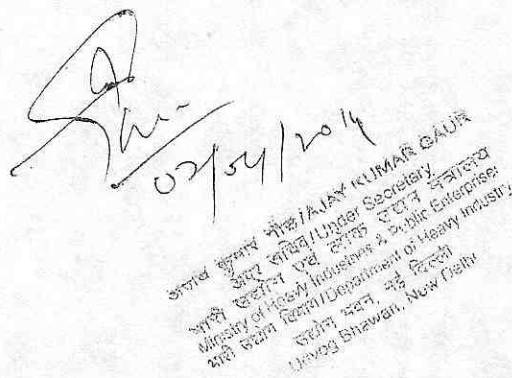 02/04/2014
अजय कुमार गौड़/AJAY KUMAR GAUR
अवर सचिव/Under Secretary
भारी उद्योग एवं लोक उद्यम मंत्रालय
Ministry of Heavy Industries & Public Enterprises
भारी उद्योग विभाग/Department of Heavy Industry
उद्योग भवन, नई दिल्ली
Udyog Bhawan, New Delhi